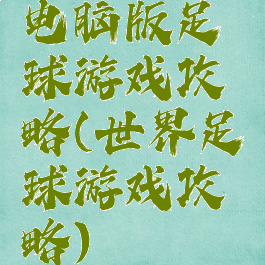 电脑版足
球游戏攻
略(世界足
球游戏攻
略)